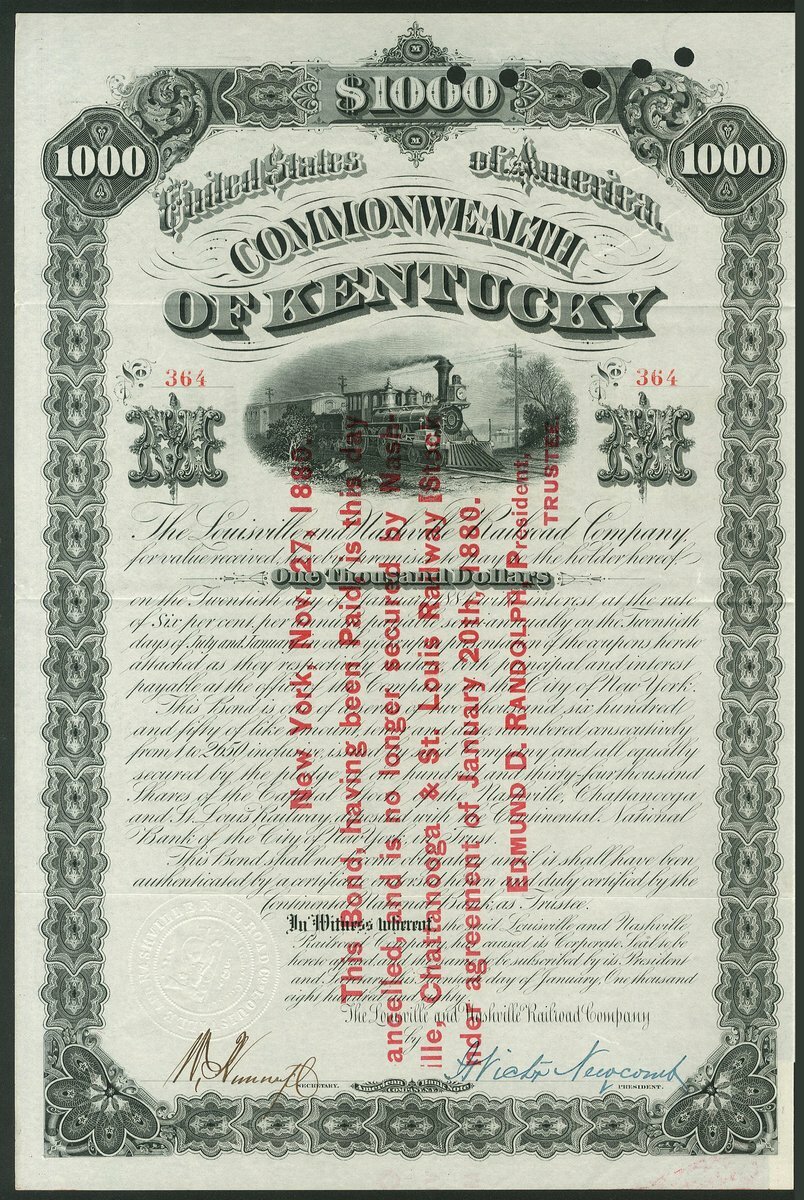 $1000
1000 1000
M
M
United States of America.
COMMONWEALTH
OF KENTUCKY
No. 364 No. 364
M M
The Louisville and Nashville Railroad Company,
for value received, hereby promises to pay to the holder hereof
One Thousand Dollars
on the Twentieth day of with interest at the rate
of Six per cent per annum, payable semi-annually on the Twentieth
days of July and January of the coupons hereto
attached as they respectively principal and interest
payable at the office of the Company in the City of New York.
This Bond is one of a series of two thousand, six hundred
and fifty of like amount, numbered consecutively
from 1 to 2650 inclusive, issued by said Company and all equally
secured by the pledge of one hundred and thirty-four thousand
Shares of the Capital Stock of the Nashville, Chattanooga
and St. Louis Railway, deposited with the Continental National
Bank of the City of New York in Trust.
This Bond shall not become obligatory until it shall have been
authenticated by a certificate endorsed hereon and duly certified by the
Continental National Bank, as Trustee.
In Witness whereof, the said Louisville and Nashville
Railroad Company has caused its Corporate Seal to be
hereto affixed, and the same to be subscribed by its President
and Secretary this Twentieth day of January, One thousand
eight hundred and eighty.
The Louisville and Nashville Railroad Company
by
SECRETARY. H Victor Newcomb PRESIDENT.
American Bank Note Company
New York, Nov. 27, 1880.
This Bond, having been Paid, is this day
ancelled, and is no longer secured by Nash-
ille, Chattanooga & St. Louis Railway [Stock
nder agreement of January 20th, 1880.
EDMUND D. RANDOLPH, President,
TRUSTEE.